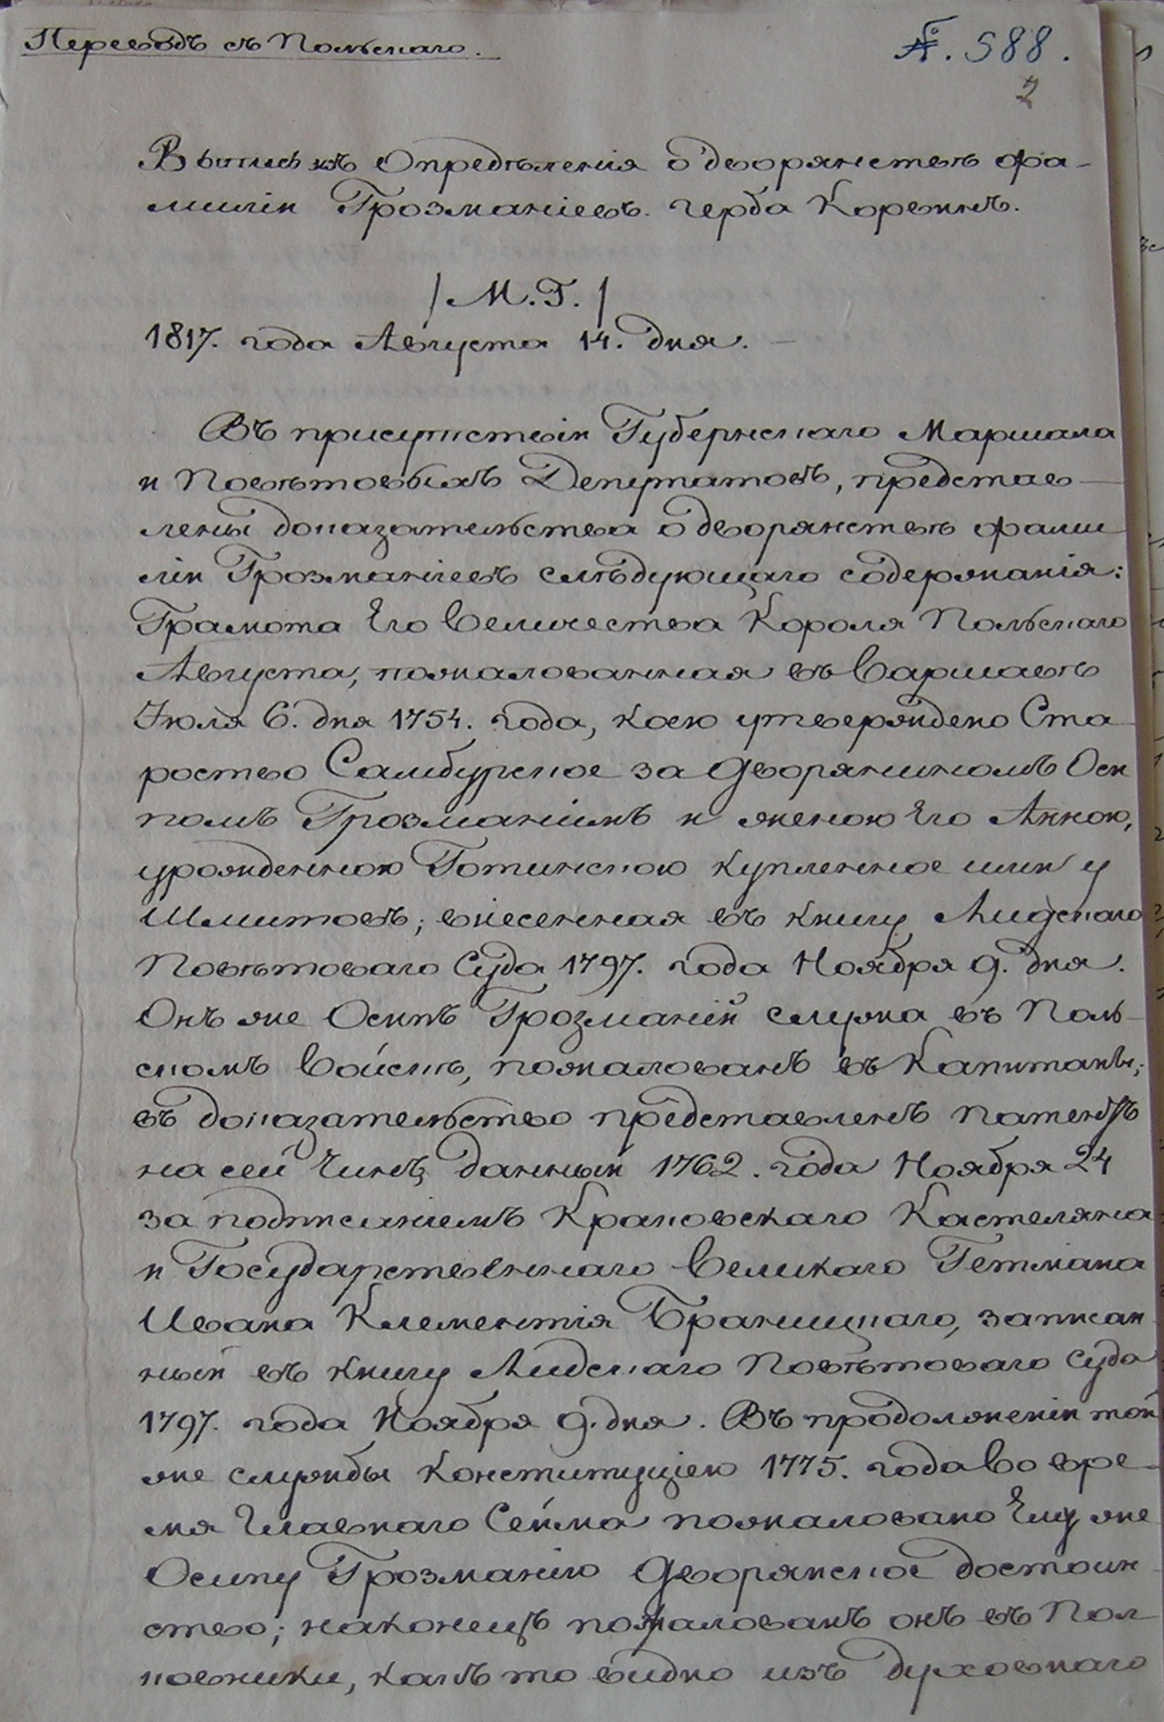 Переводъ съ Польскаго.
№. 588.
2
Выпись изъ Опредѣленія о дворянствѣ фа-
миліи Грозманіевъ герба Коревикъ.
/ М. Г. /
1817. года Августа 14. дня. —
Въ присутствіи Губернскаго Маршала
и Повѣтовыхъ Депутатовъ, представ-
лены доказательства о дворянствѣ фами
ліи Грозманіевъ слѣдующаго содержанія:
Грамота Его Величества Короля Польскаго
Августа, пожалованная въ Варшавѣ
Іюля 6. дня 1754. года, коею утверждено Ста
роство Самбурское за Дворяниномъ Оси
помъ Грозманіимъ и женою Его Анною,
урожденною Готинскою купленное ими у
Шмитовъ; внесенная въ книгу Лидскаго
Повѣтоваго Суда 1797. года Ноября 9. дня.
Онъ же Осипъ Грозманій служа въ Поль-
скомъ Войскѣ, пожалованъ въ Капитаны;
въ доказательство представленъ патентъ
на сей Чинъ, данный 1762. года Ноября 24
за подписаніемъ Краковскаго Кастеляна
и Государственнаго Великаго Гетмана
Ивана Клементія Браницкаго, записан
ный въ книгу Лидскаго Повѣтоваго Суда
1797. года Ноября 9. дня. Въ продолженіи той
же службы Конституціею 1775. года во вре-
мя Главнаго Сейма пожаловано Ему же
Осипу Грозманію Дворянское достоин-
ство; наконецъ пожалованъ онъ въ Пол
ковники, какъ то видно изъ духовнаго